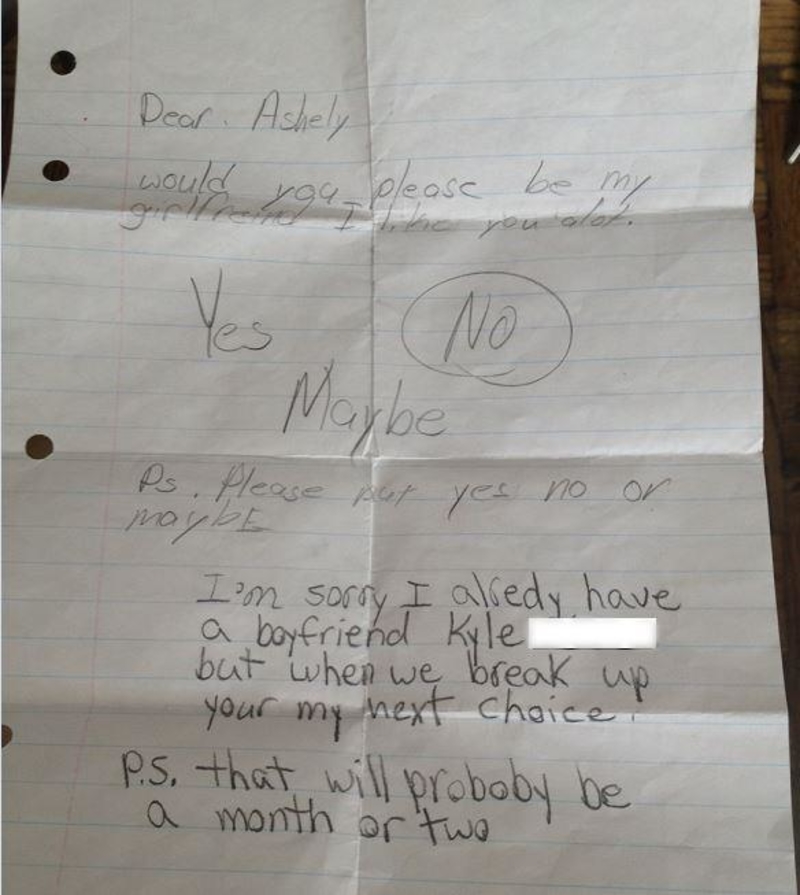 Dear. Ashely
would you please be my
girlfreind I like you alot.
Yes NO
Maybe
Ps. Please put yes no or
maybE
I'm sorry I alredy have
a boyfriend Kyle
but when we break up
your my next choice.
P.S. that will proboby be
a month or two